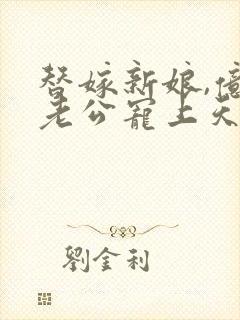 替嫁新娘,億
老公寵上天
劉金利